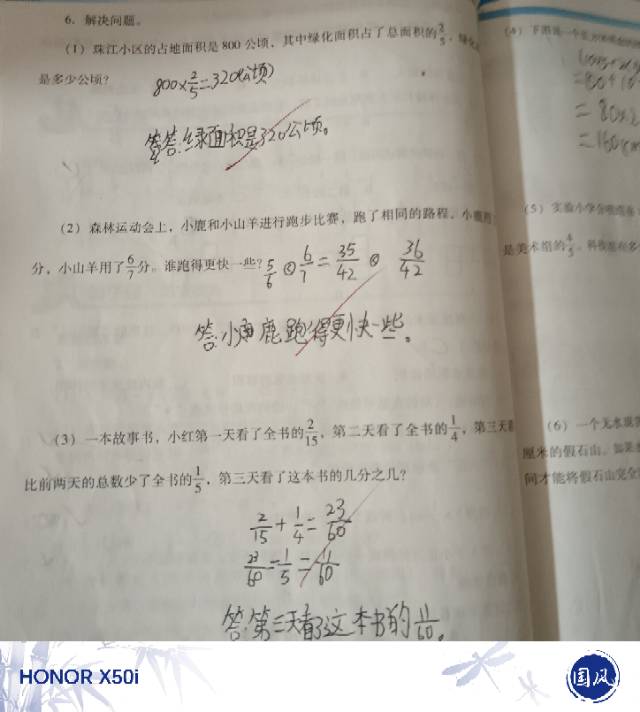 6. 解决问题。
(1) 珠江小区的占地面积是 800 公顷,其中绿化面积占了总面积的2/5,绿化
是多少公顷?
800×2/5=320(公顷)
答:绿面积是320公顷。
(2) 森林运动会上,小鹿和小山羊进行跑步比赛,跑了相同的路程,小鹿
分,小山羊用了6/7分。谁跑得更快一些?
5/6 6/7 = 35/42 36/42
答:小鹿跑得更快一些。
(3) 一本故事书,小红第一天看了全书的2/15,第二天看了全书的1/4,第三天
比前两天的总数少了全书的1/5,第三天看了这本书的几分之几?
2/15+1/4=23/60
23/60-1/5=11/60
答:第三天看了这本书的11/60。
(4) 下
=80×2
=160cm
(5) 实验小学
是美术组的4/5,科
(6) 一个无水
厘米的假石山。如果
间才能将假石山完全
HONOR X50i
国风